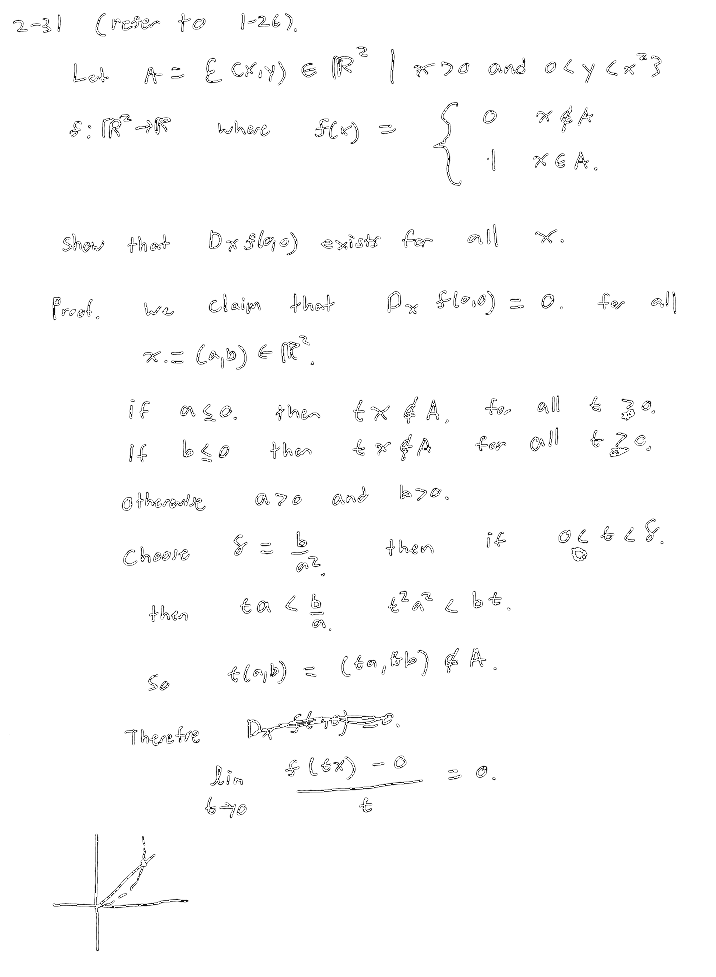 2-31 (refer to 1-26).
Let A = { (x,y) ∈ ℝ² | x>0 and 0<y<x²}
f: ℝ²→ℝ where f(x) = { 0 x ∉ A
1 x ∈ A.
Show that Dx f(0,0) exists for all x.
Proof. We claim that Dx f(0,0) = 0. for all
x = (a,b) ∈ ℝ².
if a ≤ 0. then tx ∉ A. for all t ≥ 0.
If b ≤ 0 then tx ∉ A for all t ≥ 0.
otherwise a>0 and b>0.
Choose δ = b/a². then if 0 < t < δ.
then ta < b/a. t²a² < bt.
So t(a,b) = (ta, tb) ∉ A.
Therefre Dx f(0,0) = 0.
lim t→0 f(tx) - 0 / t = 0.